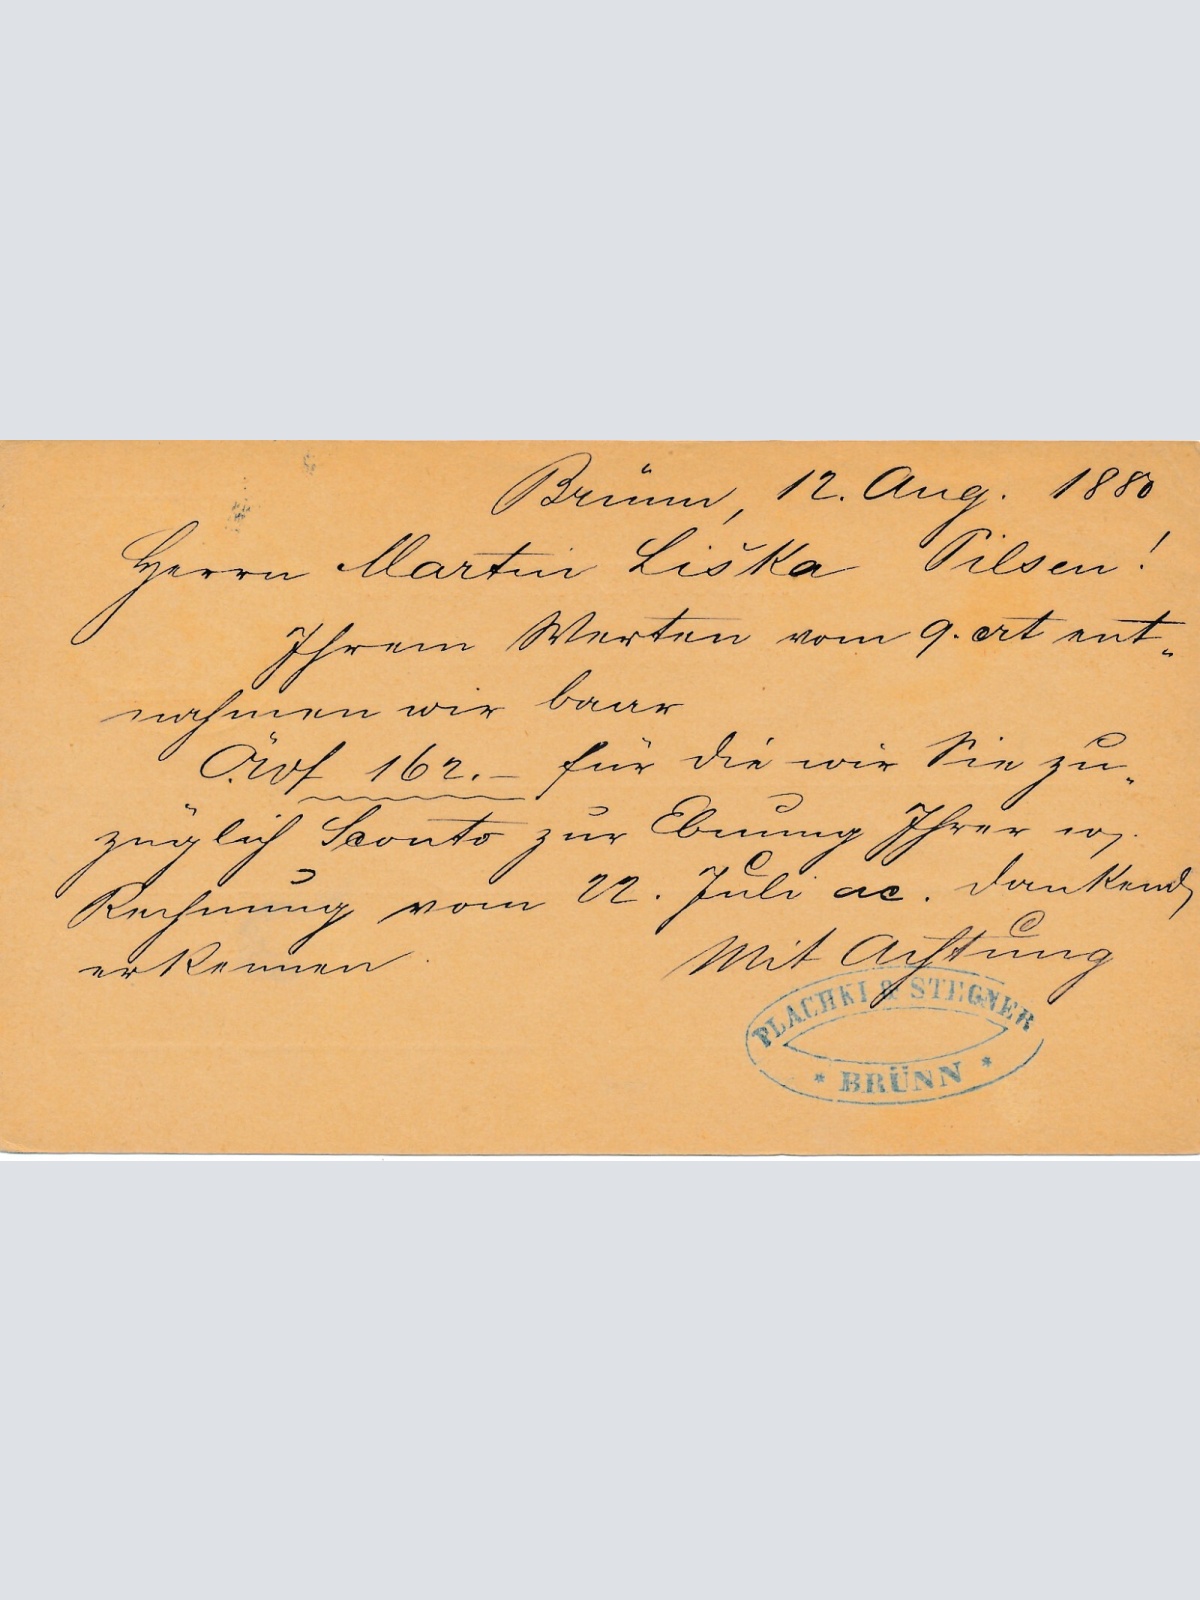 Brünn, 12. Aug. 1880
Herrn Martin Liška Pilsen!
Ihrem Werten vom 9. crt ent-
nahmen wir baar
ÖWf 162.– für die wir Sie zu-
züglich Sconto zur Ebnung Ihrer
Rechnung vom 22. Juli ac. dankend
erkennen.
Mit Achtung
PLACHKI & STEGNER
* BRÜNN *